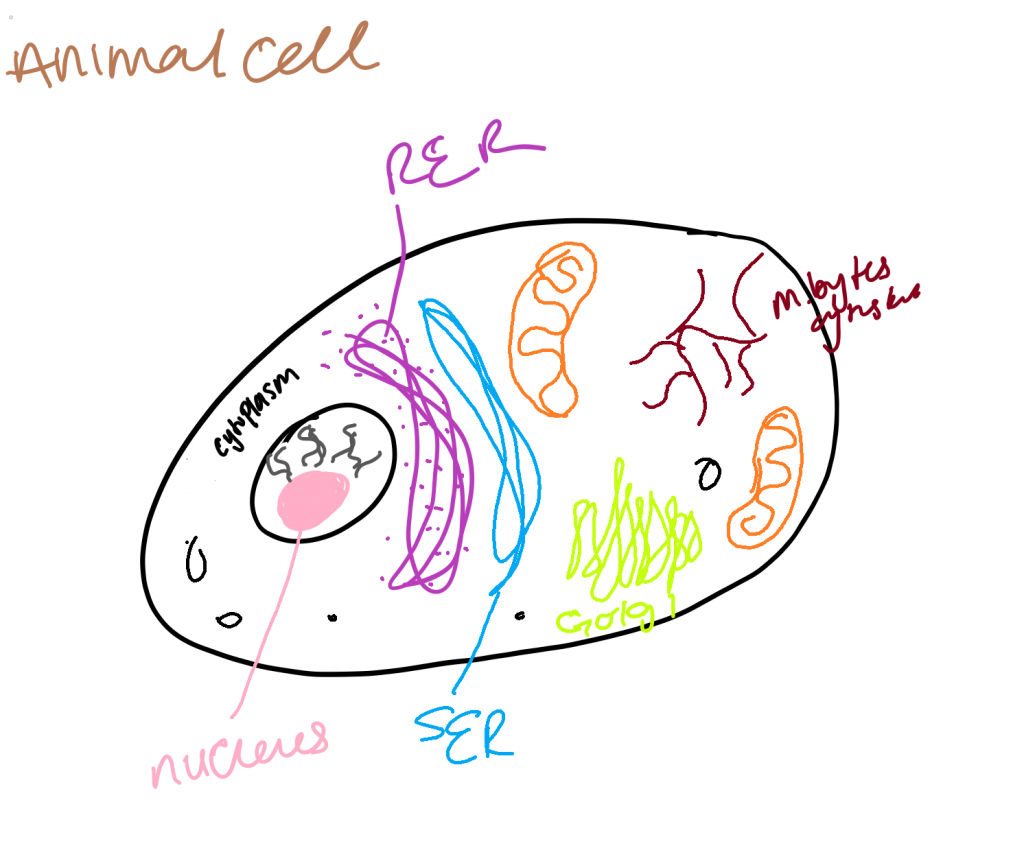 Animal Cell
RER
cytoplasm
Golgi
nucleus
SER